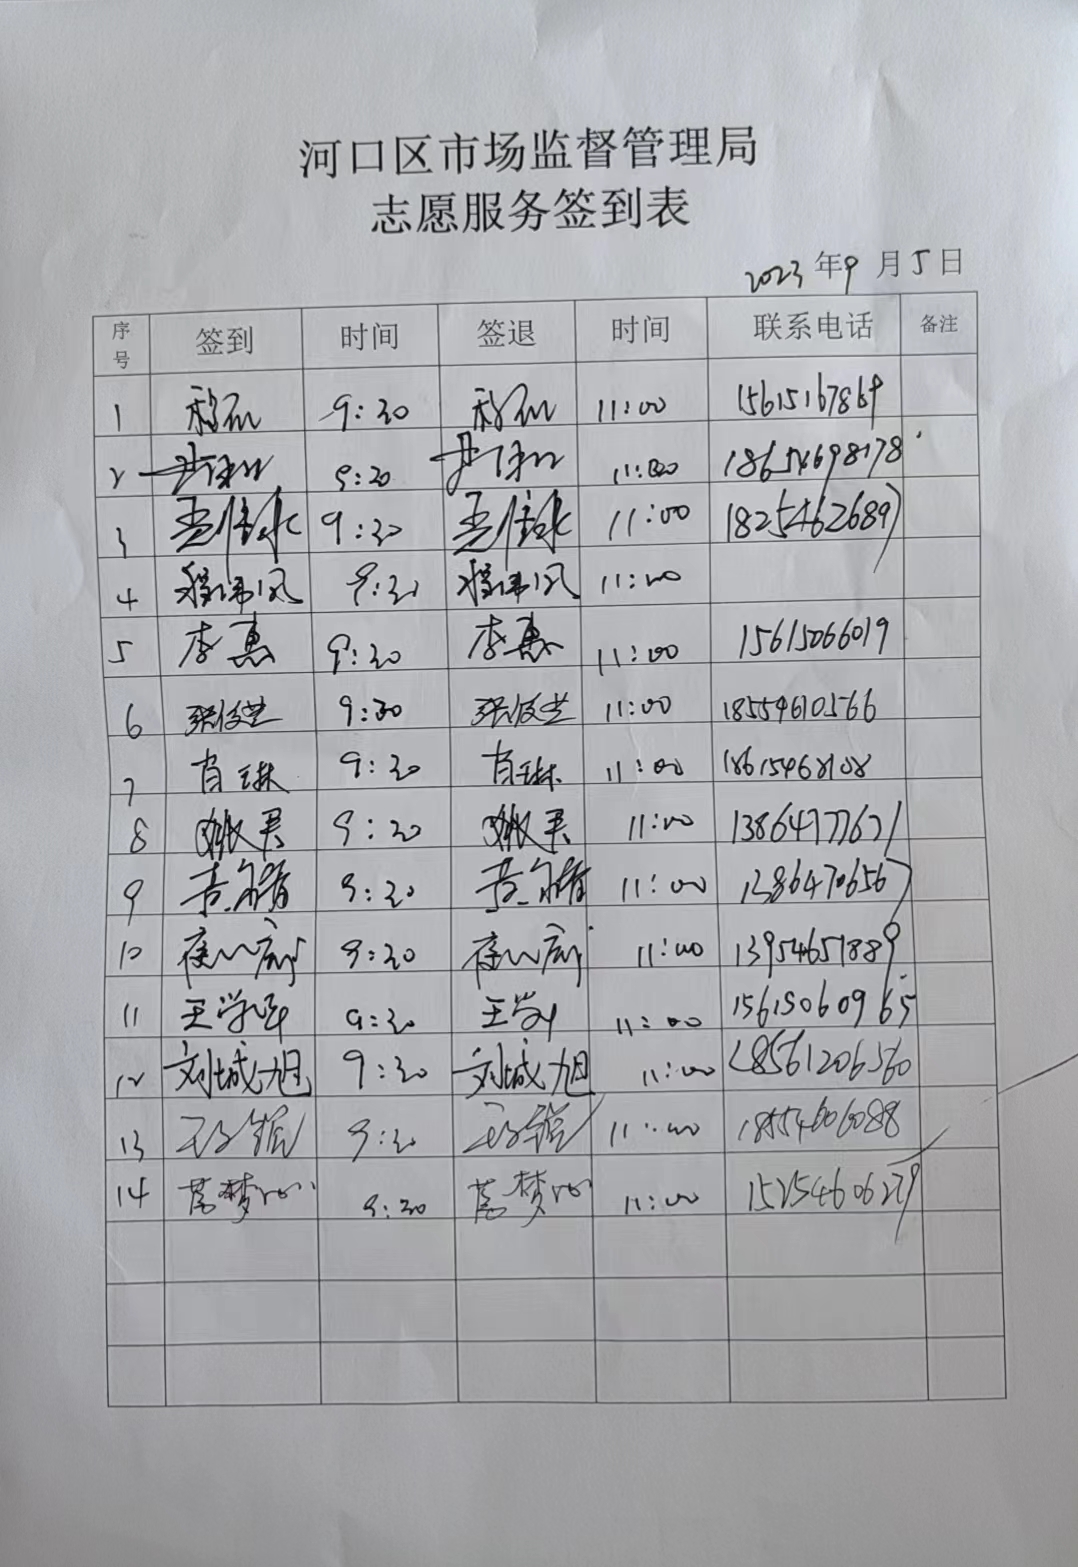 河口区市场监督管理局
志愿服务签到表
2023 年 9 月 5 日
序号 签到 时间 签退 时间 联系电话 备注
1 9:30 11:00 15615167869
2 9:30 11:00 18654698178
3 9:30 11:00 18254626897
4 9:30 11:00
5 李惠 9:30 李惠 11:00 15615066019
6 张俊芝 9:30 张俊芝 11:00 18554610566
7 肖琳 9:30 肖琳 11:00 18615468108
8 姚君 9:30 姚君 11:00 13864777671
9 9:30 11:00 13864706567
10 9:30 11:00 13954651889
11 9:30 11:00 15615060965
12 刘城旭 9:30 刘城旭 11:00 18561206560
13 9:30 11:00 18554606088
14 9:30 11:00 15254606279